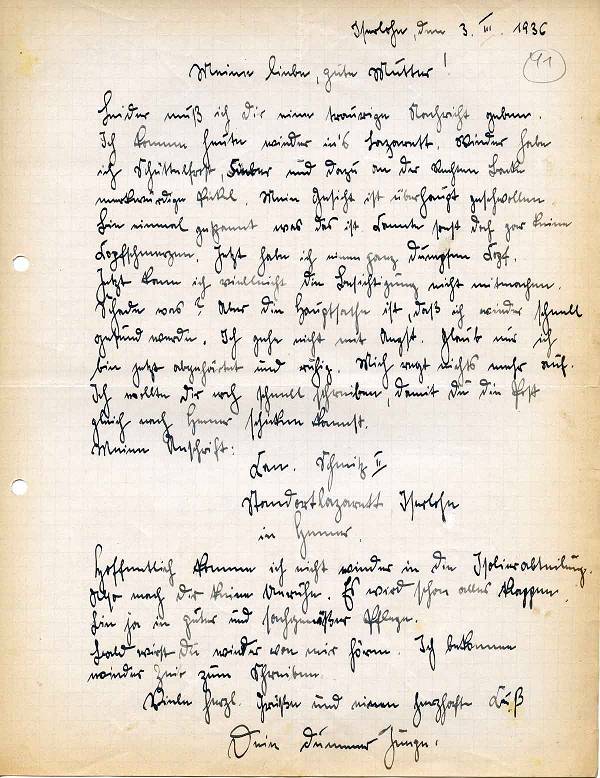 Iserlohn, den 3. III. 1936
41
Meine liebe, gute Mutter!
Leider muß ich dir eine traurige Nachricht geben.
Ich komme heute wieder in's Lazarett. Wieder habe
ich Schüttelfrost, Fieber und dazu an der rechten Backe
merkwürdige Pickel. Mein Gesicht ist überhaupt geschwollen.
Bin einmal gespannt was das ist. Kannte sonst doch gar keine
Kopfschmerzen. Jetzt habe ich einen ganz dumpfen Kopf.
Jetzt kann ich vielleicht die Besichtigung nicht mitmachen.
Schade was? Aber die Hauptsache ist, daß ich wieder schnell
gesund werde. Ich gehe nicht mit Angst. Glaub mir ich
bin jetzt abgehärtet und ruhig. Mich regt nichts mehr auf.
Ich wollte dir noch schnell schreiben, damit du die Post
gleich nach Hemer schicken kannst.
Meine Anschrift:
Kan. Schmitz II
Standortlazarett Iserlohn
in Hemer.
Hoffentlich komme ich nicht wieder in die Isolierabteilung.
Also mach dir keine Unruhe. Es wird schon alles klappen.
Bin ja in guter und sachgemäßer Pflege.
Bald wirst du wieder von mir hören. Ich bekomme
wieder Zeit zum Schreiben.
Viele herzl. Grüße und einen herzhafte Kuß
Dein dummer Junge.